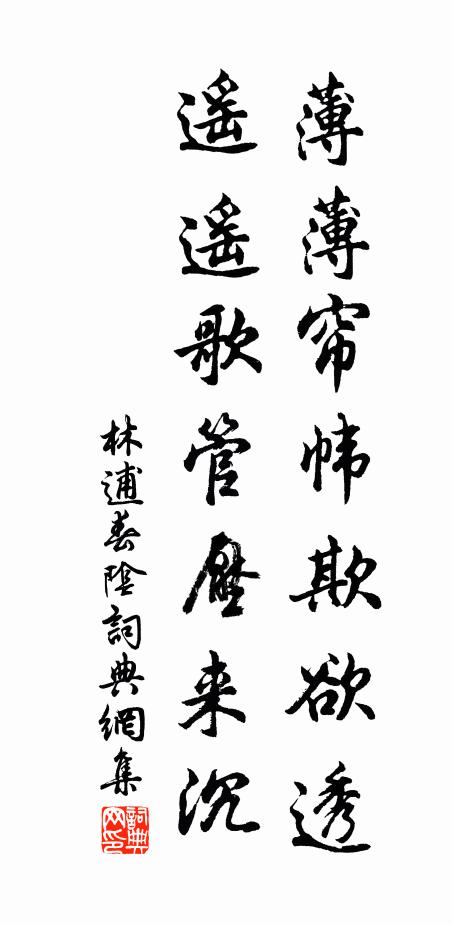 薄薄帘帏欺欲透
遥遥歌管压来沉
林逋春陰詞典網集
詞典网印